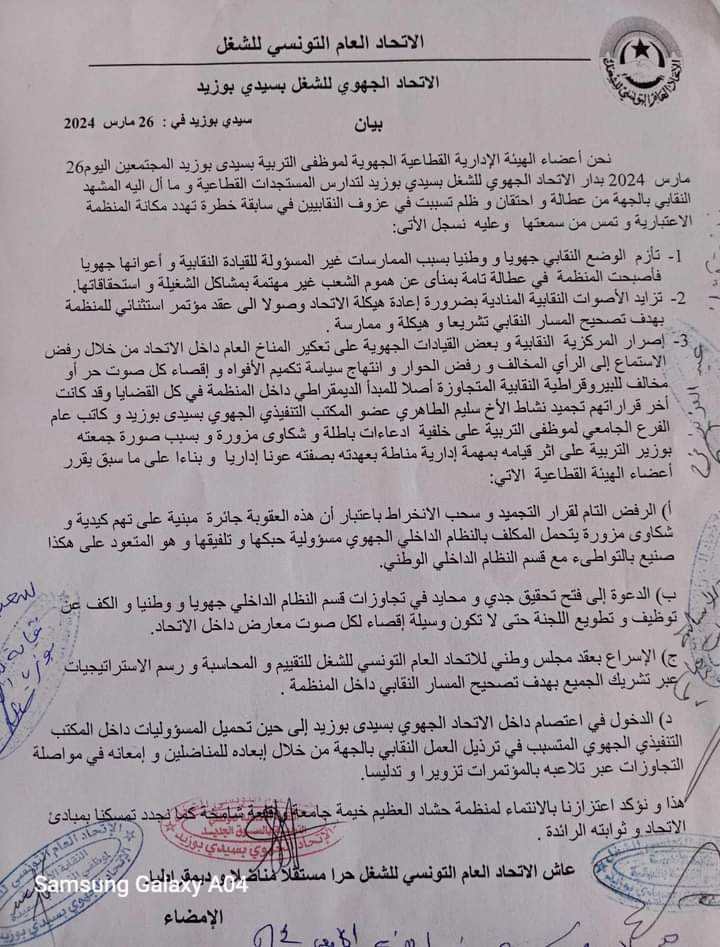 الاتحاد العام التونسي للشغل
الاتحاد الجهوي للشغل بسيدي بوزيد
بيان
سيدي بوزيد في : 26 مارس 2024
نحن أعضاء الهيئة الإدارية القطاعية الجهوية لموظفى التربية بسيدى بوزيد المجتمعين اليوم26
مارس 2024 بدار الاتحاد الجهوي للشغل بسيدي بوزيد لتدارس المستجدات القطاعية و ما أل اليه المشهد
النقابي بالجهة من عطالة و احتقان و ظلم تسببت في عزوف النقابيين في سابقة خطرة تهدد مكانة المنظمة
الاعتبارية و تمس من سمعتها وعليه نسجل الأتى:
1- تأزم الوضع النقابي جهويا و وطنيا بسبب الممارسات غير المسؤولة للقيادة النقابية و أعوانها جهويا
فأصبحت المنظمة في عطالة تامة بمنأى عن هموم الشعب غير مهتمة بمشاكل الشغيلة و استحقاقاتها.
2- تزايد الأصوات النقابية المنادية بضرورة إعادة هيكلة الاتحاد وصولا الى عقد مؤتمر استثنائي للمنظمة
بهدف تصحيح المسار النقابي تشريعا و هيكلة و ممارسة .
3- إصرار المركزية النقابية و بعض القيادات الجهوية على تعكير المناخ العام داخل الاتحاد من خلال رفض
الاستماع إلى الرأي المخالف و رفض الحوار و انتهاج سياسة تكميم الأفواه و إقصاء كل صوت حر أو
مخالف للبيروقراطية النقابية المتجاوزة أصلا للمبدأ الديمقراطي داخل المنظمة في كل القضايا وقد كانت
أخر قراراتهم تجميد نشاط الأخ سليم الطاهري عضو المكتب التنفيذي الجهوي بسيدى بوزيد و كاتب عام
الفرع الجامعي لموظفى التربية على خلفية ادعاءات باطلة و شكاوى مزورة و بسبب صورة جمعته
بوزير التربية على اثر قيامه بمهمة إدارية مناطة بعهدته بصفته عونا إداريا و بناءا على ما سبق يقرر
أعضاء الهيئة القطاعية الاتي:
أ) الرفض التام لقرار التجميد و سحب الانخراط باعتبار أن هذه العقوبة جائرة مبنية على تهم كيدية و
شكاوى مزورة يتحمل المكلف بالنظام الداخلي الجهوي مسؤولية حبكها و تلفيقها و هو المتعود على هكذا
صنيع بالتواطىء مع قسم النظام الداخلي الوطني.
ب) الدعوة إلى فتح تحقيق جدي و محايد في تجاوزات قسم النظام الداخلي جهويا و وطنيا و الكف عن
توظيف و تطويع اللجنة حتى لا تكون وسيلة إقصاء لكل صوت معارض داخل الاتحاد.
ج) الإسراع بعقد مجلس وطني للاتحاد العام التونسي للشغل للتقييم و المحاسبة و رسم الاستراتيجيات
عبر تشريك الجميع بهدف تصحيح المسار النقابي داخل المنظمة .
د) الدخول في اعتصام داخل الاتحاد الجهوي بسيدى بوزيد إلى حين تحميل المسؤوليات داخل المكتب
التنفيذي الجهوي المتسبب في ترذيل العمل النقابي بالجهة من خلال إبعاده للمناضلين و إمعانه في مواصلة
التجاوزات عبر تلاعبه بالمؤتمرات تزويرا و تدليسا.
هذا و نؤكد اعتزازنا بالانتماء لمنظمة حشاد العظيم خيمة جامعة وقلعة شامخة كما نجدد تمسكنا بمبادئ
الاتحاد و ثوابته الرائدة .
عاش الاتحاد العام التونسي للشغل حرا مستقلا مناضلا و ديمقراطيا
Samsung Galaxy A04
الإمضاء